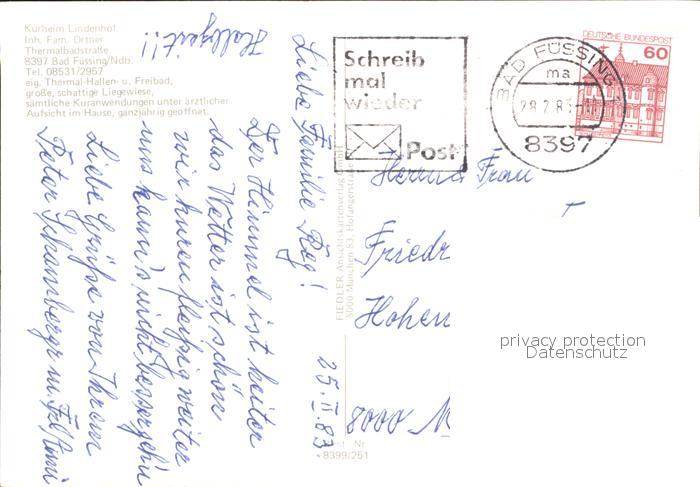 Kurheim Lindenhof
Inh. Fam. Ortner
Thermalbadstraße
8397 Bad Füssing/Ndb.
Tel. 08531/2957
eig. Thermal-Hallen- u. Freibad,
große, schattige Liegewiese,
sämtliche Kuranwendungen unter ärztlicher
Aufsicht im Hause, ganzjährig geöffnet.
Schreib
mal
wieder
Post
BAD FÜSSING
ma
28.2.83
8397
DEUTSCHE BUNDESPOST
60
25.II.83.
Liebe Familie
Der Himmel ist heiter
das Wetter ist schön
wir kuren fleißig weiter
uns kann's nicht besser geh'n
Liebe Grüße von Ihrem
Peter
Halbzeit!!
FIEDLER Ansichtskartenverlag
8000 München 83
Herrn u. Frau
Friedr
Hohen
8000 M
Nr.
8399/251
privacy protection
Datenschutz